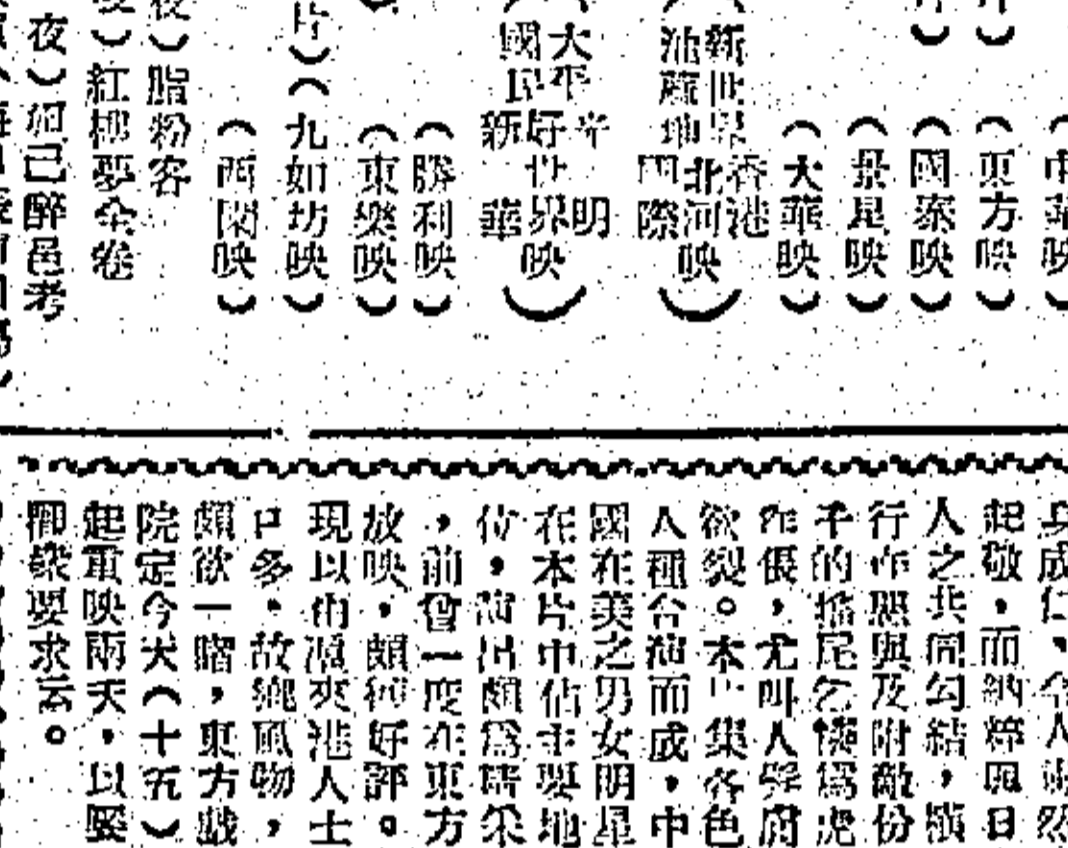 中華映︶
︵東方映︶
︵國泰映︶
︵景星映︶
︵大華映︶
新世界 香港
北河映︶
國際
大平 光明
好世界映︶
國民 新華
︵勝利映︶
︵東樂映︶
片︶︵九如坊映︶
︵西園映︶
夜︶脂粉客
夜︶紅樓夢全卷
夜︶妲己醉邑考
身成仁，令人肅然
起敬，而納粹與日
人之共同勾結，橫
行作惡與及附敵份
子的搖尾乞憐爲虎
作倀，尤叫人學府
欲裂。本片集各色
人種合演而成，中
國在美之男女明星
在本片中佔主要地
位，演出頗爲精采
，前曾一度在東方
放映，頗獲好評。
現以由滬來港人士
日多，故鄉風物，
頗欲一睹，東方戲
院定今天︵十五︶
起重映兩天，以饜
衆要求云。